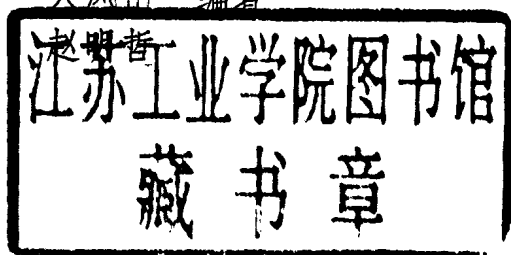 赵明哲
江苏工业学院图书馆
藏书章